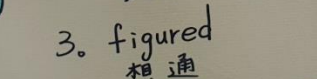 3。figured
想 通